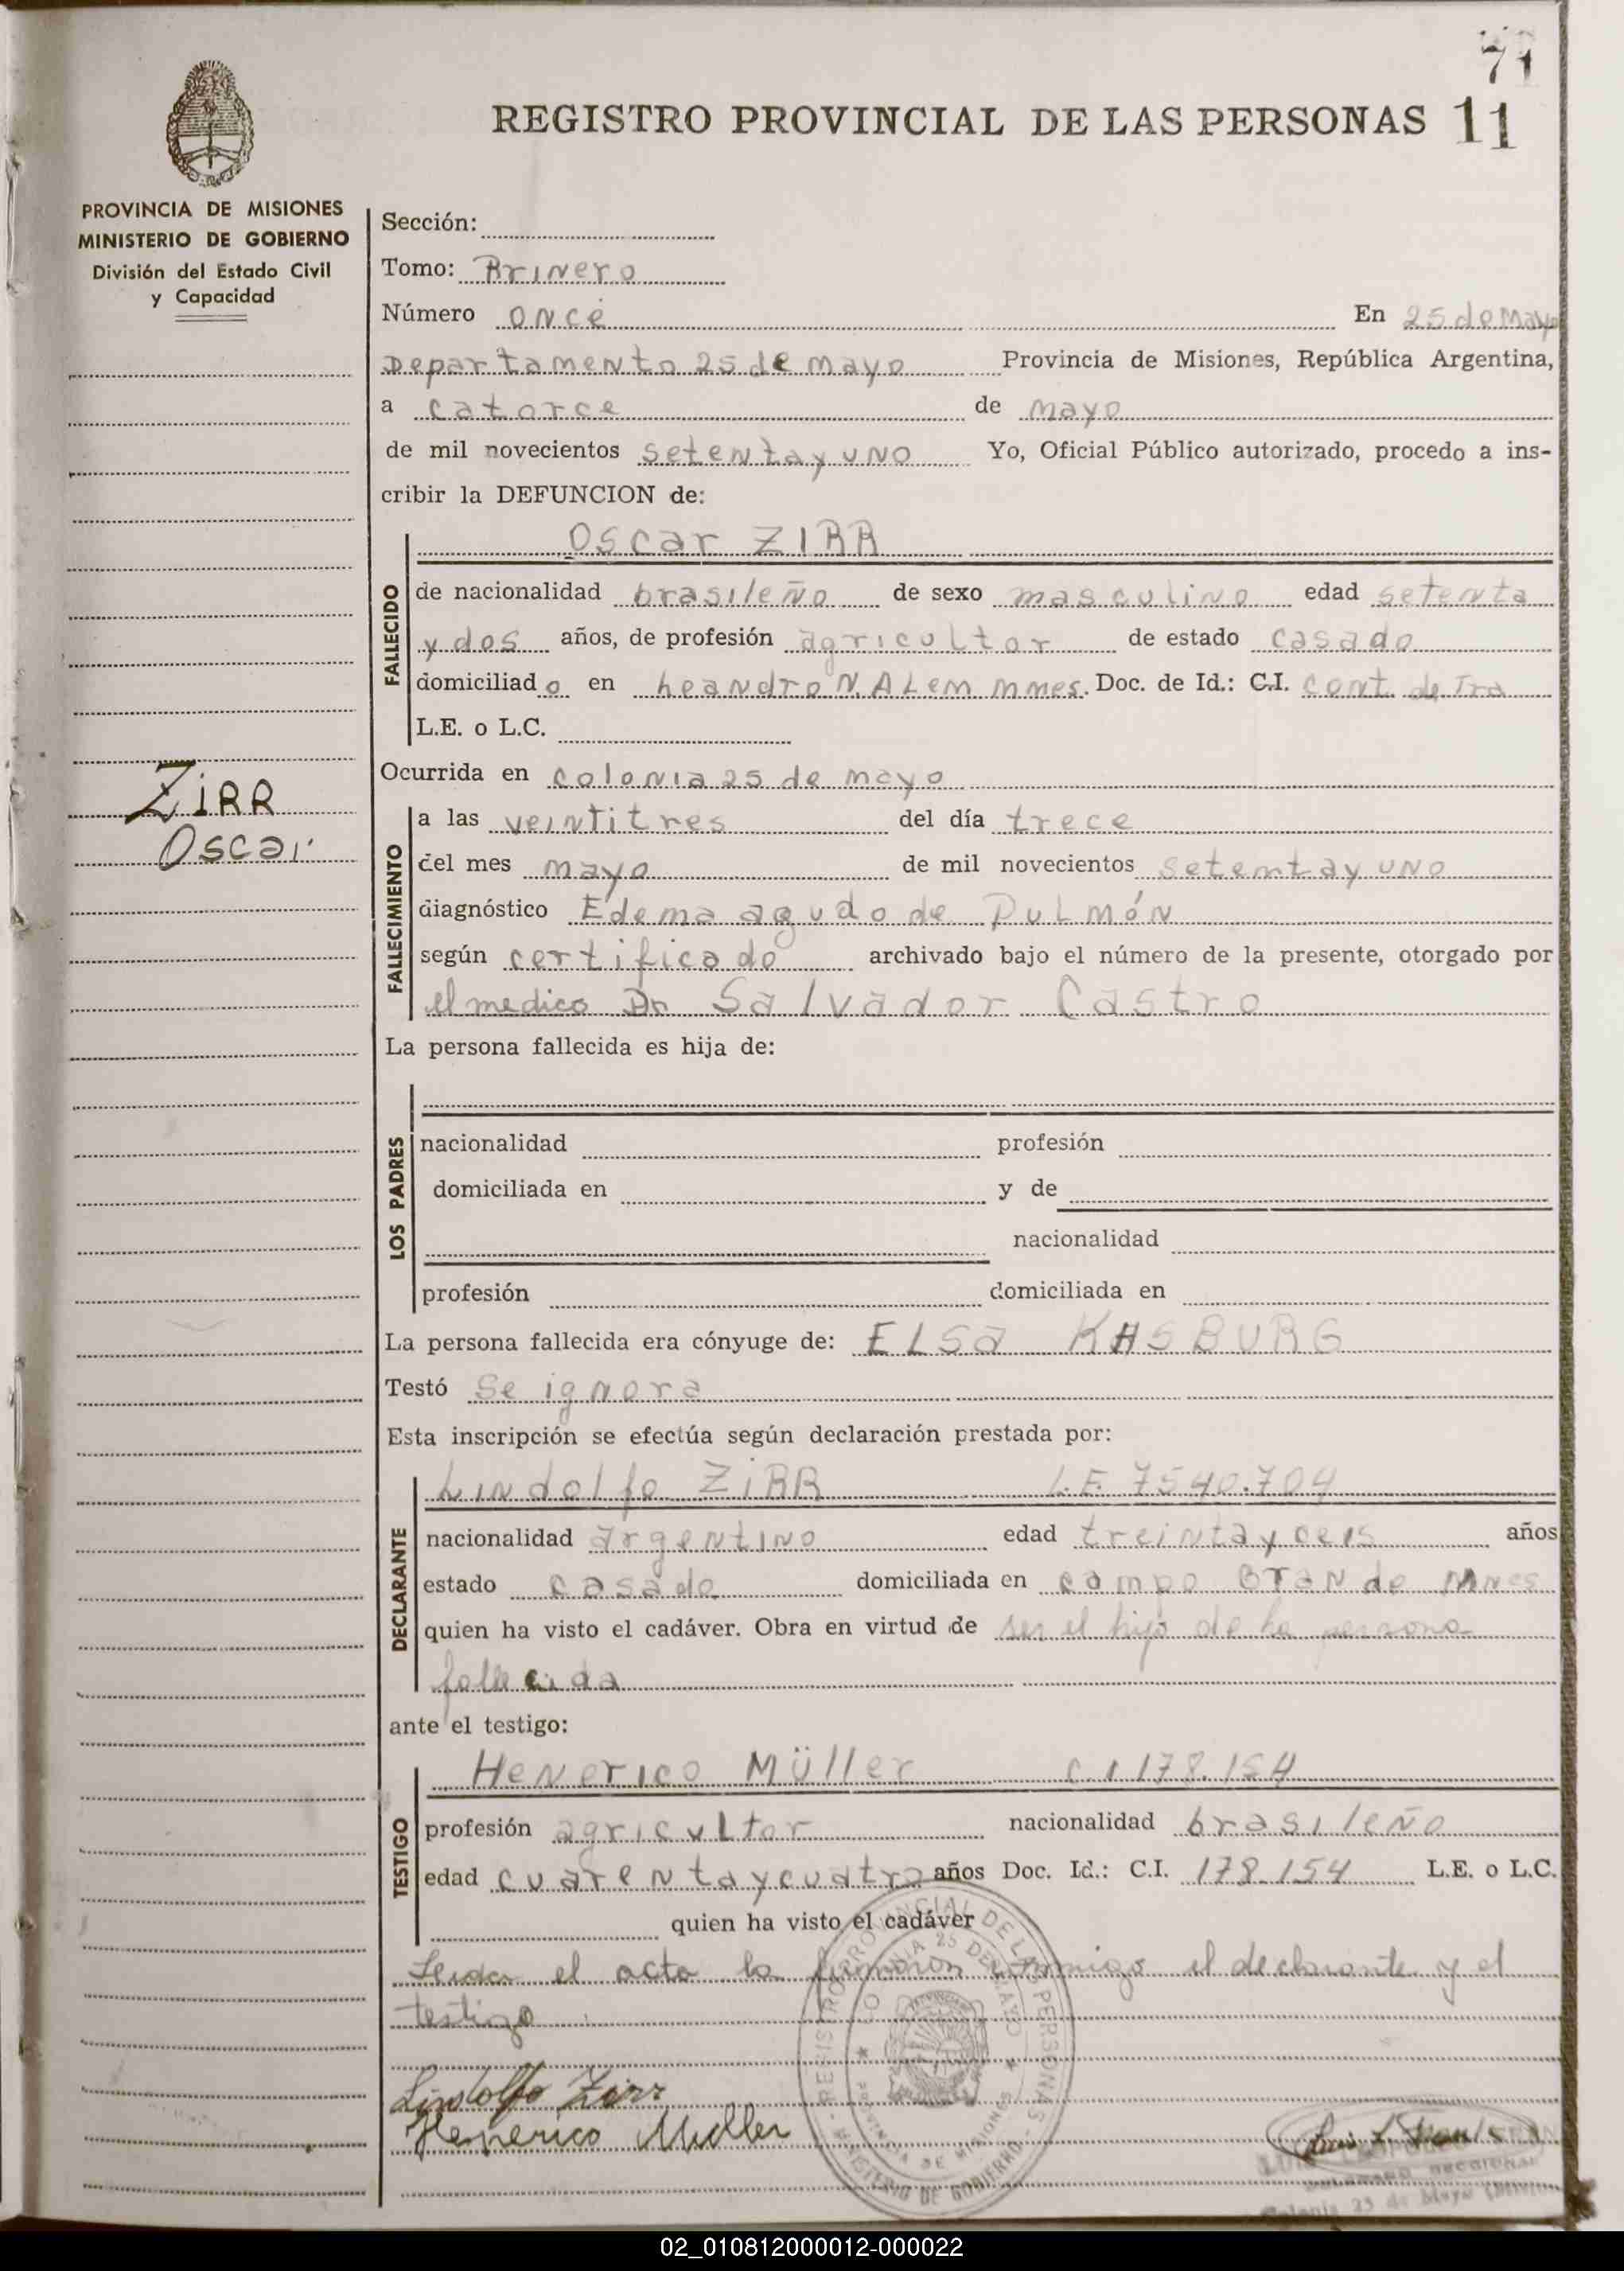 71
REGISTRO PROVINCIAL DE LAS PERSONAS 11
PROVINCIA DE MISIONES
MINISTERIO DE GOBIERNO
División del Estado Civil
y Capacidad
Sección:
Tomo: Primero
Número once En 25 de Mayo
Departamento 25 de Mayo Provincia de Misiones, República Argentina,
a catorce de mayo
de mil novecientos setenta y uno Yo, Oficial Público autorizado, procedo a ins-
cribir la DEFUNCION de:
Oscar ZIRR
FALLECIDO
de nacionalidad brasileño de sexo masculino edad setenta
y dos años, de profesión agricultor de estado casado
domiciliado en Leandro N. ALem Mnes. Doc. de Id.: C.I. cont. de Fra
L.E. o L.C.
ZiRR
Oscar
Ocurrida en colonia 25 de mayo
FALLECIMIENTO
a las veintitres del día trece
del mes mayo de mil novecientos setemta y uno
diagnóstico Edema agudo de Pulmón
según certificado archivado bajo el número de la presente, otorgado por
el medico Dr Salvador Castro
La persona fallecida es hija de:
LOS PADRES
nacionalidad profesión
domiciliada en y de
nacionalidad
profesión domiciliada en
La persona fallecida era cónyuge de: ELSa KHSBURG
Testó Se ignora
Esta inscripción se efectúa según declaración prestada por:
DECLARANTE
Lindolfo ZiRR L.E. 7540.704
nacionalidad argentino edad treinta y ceis años
estado casado domiciliada en campo Grande Mnes
quien ha visto el cadáver. Obra en virtud de ser el hijo de la persona
fallecida
ante el testigo:
TESTIGO
Henerico Müller C.I 178.154
profesión agricultor nacionalidad brasileño
edad cuarenta y cuatro años Doc. Id.: C.I. 178.154 L.E. o L.C.
quien ha visto el cadáver
Leida el acta la firmaron conmigo el declarante y el
testigo
Lindolfo Zirr
Henerico Müller
REGISTRO PROVINCIAL DE LAS PERSONAS
MINISTERIO DE GOBIERNO
COLONIA 25 DE MAYO
PROVINCIA DE MISIONES
Colonia 25 de Mayo
02_010812000012-000022